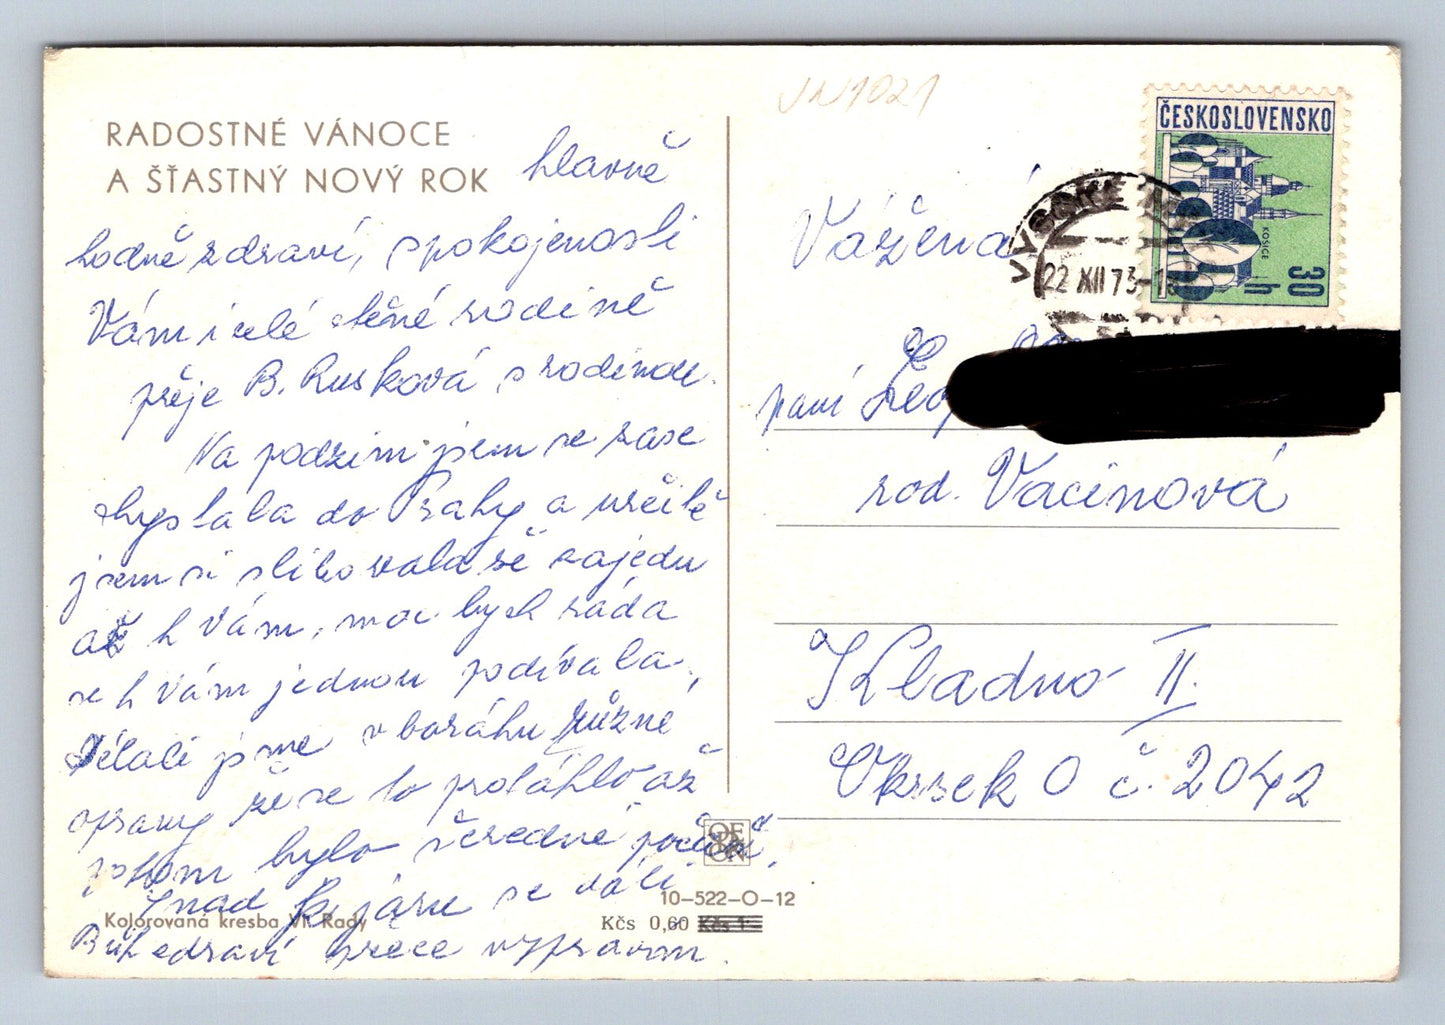 RADOSTNÉ VÁNOCE
A ŠŤASTNÝ NOVÝ ROK
hlavně
hodně zdraví, spokojenosti
Vám i celé ctěné rodině
přeje B. Rusková s rodinou.
Na podzim jsem se zase
chystala do Prahy a určitě
jsem si slibovala že zajedu
až k Vám, moc bych ráda
se k Vám jednou podívala,
Dělali jsme v baráku různé
opravy že se to protáhlo až
potom bylo škaredné počasí.
Snad k járu se dálí
Bůh zdraví přece vypravím.
Kolorovaná kresba Vl. Rady
ODEON
10-522-O-12
Kčs 0,60 Kčs 1-
VN1021
ČESKOSLOVENSKO
KOŠICE
30 h
VYSOKÉ
22 XII 73-1
Vážená
paní
rod. Vacinová
Kladno II.
Vkrsek O č. 2042